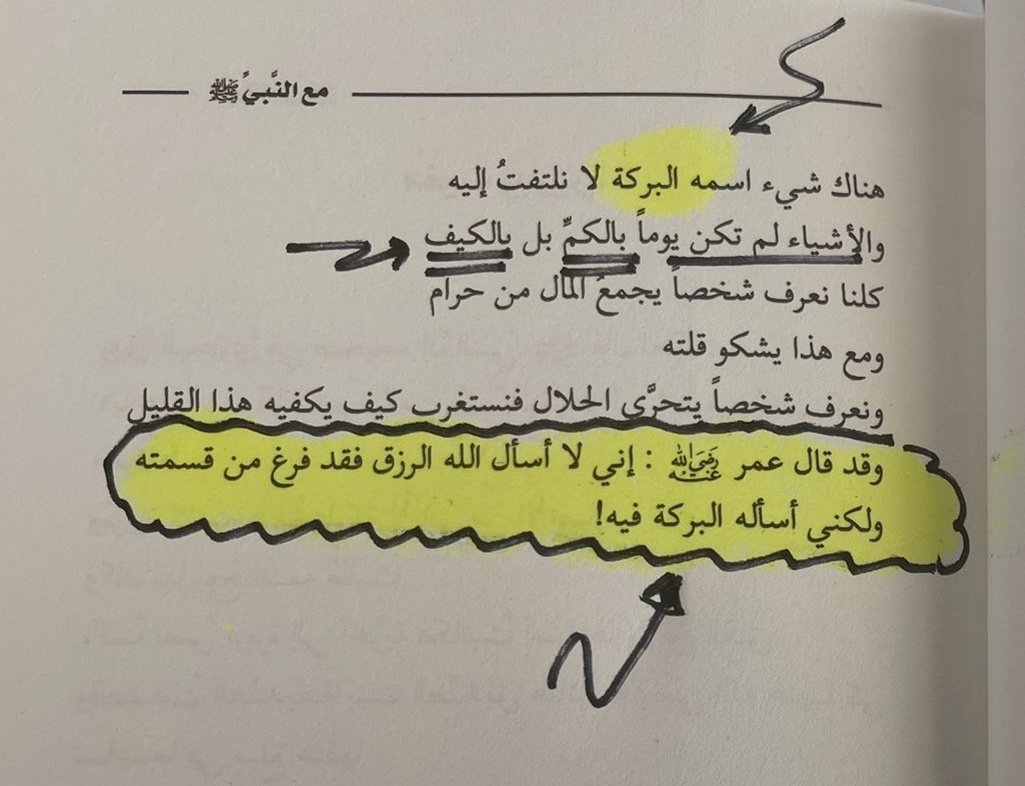 مع النَّبيِّ ﷺ
هناك شيء اسمه البركة لا نلتفتُ إليه
والأشياء لم تكن يوماً بالكمِّ بل بالكيف
كلنا نعرف شخصاً يجمعُ المال من حرام
ومع هذا يشكو قلته
ونعرف شخصاً يتحرَّى الحلال فنستغرب كيف يكفيه هذا القليل
وقد قال عمر رَضِيَ الله عَنه : إني لا أسأل الله الرزق فقد فرغ من قسمته
ولكني أسأله البركة فيه!